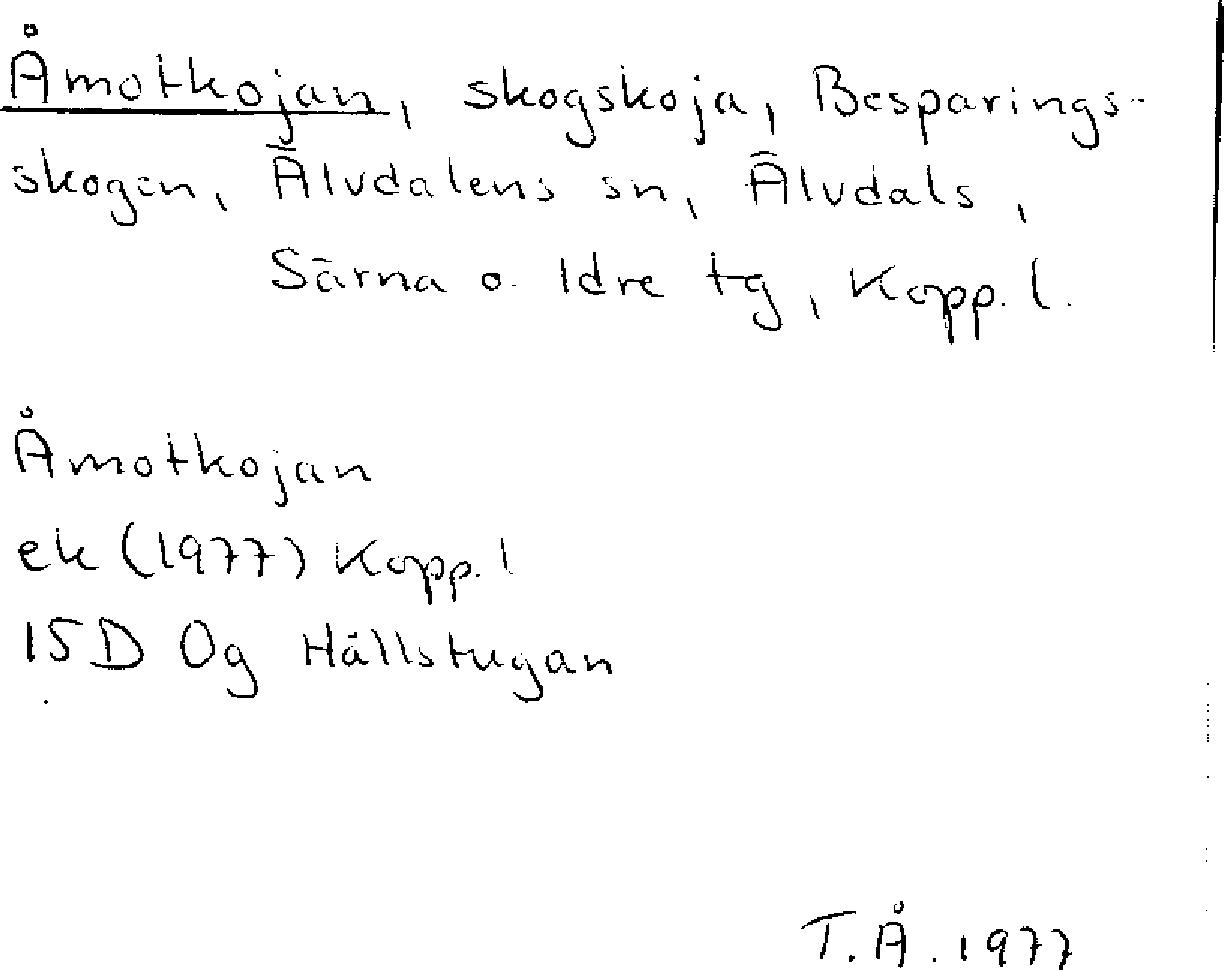 Åmotkojan, skogskoja, Besparings-
skogen, Älvdalens sn, Älvdals,
Särna o. Idre tg, Kopp. l.
Åmotkojan
ek (1977) Kopp. l
15D 0g Hällstugan
T.Å. 1977